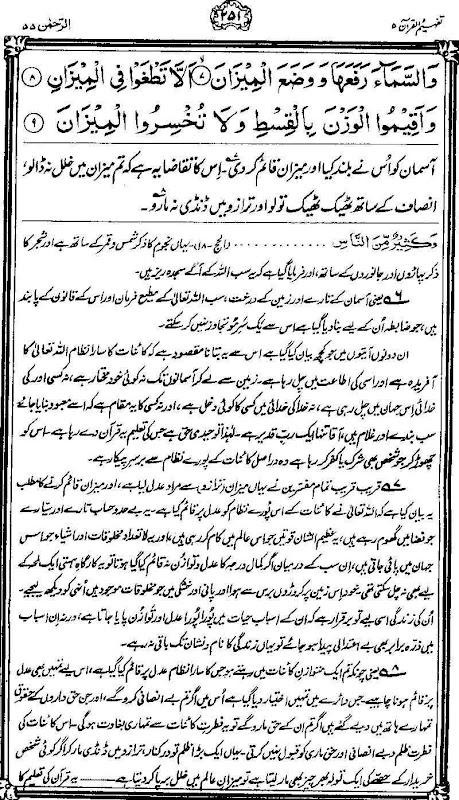 تفہیم القرآن ۵
۲۵۱
الرّحمٰن ۵۵
وَالسَّمَآءَ رَفَعَهَا وَوَضَعَ الْمِيْزَانَ ۷ اَلَّا تَطْغَوْا فِي الْمِيْزَانِ ۸
وَاَقِيْمُوا الْوَزْنَ بِالْقِسْطِ وَلَا تُخْسِرُوا الْمِيْزَانَ ۹
آسمان کو اُس نے بلند کیا اور میزان قائم کر دی۔ اِس کا تقاضا یہ ہے کہ تم میزان میں خلل نہ ڈالو،
انصاف کے ساتھ ٹھیک ٹھیک تولو اور ترازو میں ڈنڈی نہ مارو۔
وَكَثِيْرٌ مِّنَ النَّاسِ ........ (الحج-۱۸)۔ یہاں نجوم کا ذکر شمس و قمر کے ساتھ ہے اور شجر کا
ذکر پہاڑوں اور جانوروں کے ساتھ، اور فرمایا گیا ہے کہ یہ سب اللہ کے آگے سجدہ ریز ہیں۔
۵۶ یعنی آسمان کے تارے اور زمین کے درخت، سب اللہ تعالیٰ کے مطیع فرمان اور اُس کے قانون کے پابند
ہیں، جو ضابطہ اُن کے لیے بنا دیا گیا ہے اس سے یک سرِ مُو تجاوز نہیں کر سکتے۔
ان دونوں آیتوں میں جو کچھ بیان کیا گیا ہے اس سے یہ بتانا مقصود ہے کہ کائنات کا سارا نظام اللہ تعالیٰ کا
آفریدہ ہے اور اسی کی اطاعت میں چل رہا ہے۔ زمین سے لے کر آسمانوں تک نہ کوئی خود مختار ہے، نہ کسی اور کی
خدائی اِس جہان میں چل رہی ہے، نہ خدا کی خدائی میں کسی کا کوئی دخل ہے، اور نہ کسی کا یہ مقام ہے کہ اُسے معبود بنایا جائے۔
سب بندے اور غلام ہیں، آقا تنہا ایک ربِّ قدیر ہے۔ لہٰذا توحید ہی حق ہے جس کی تعلیم یہ قرآن دے رہا ہے۔ اس کو
چھوڑ کر جو شخص بھی شرک یا کفر کر رہا ہے وہ دراصل کائنات کے پورے نظام سے برسرِ پیکار ہے۔
۵۷ قریب قریب تمام مفسّرین نے یہاں میزان (ترازو) سے مراد عدل لیا ہے، اور میزان قائم کرنے کا مطلب
یہ بیان کیا ہے کہ اللہ تعالیٰ نے کائنات کے اس پورے نظام کو عدل پر قائم کیا ہے۔ یہ بے حد و حساب تارے اور سیّارے
جو فضا میں گھوم رہے ہیں، یہ عظیم الشان قوتیں جو اس عالم میں کام کر رہی ہیں، اور یہ لاتعداد مخلوقات اور اشیاء جو اس
جہان میں پائی جاتی ہیں، اِن سب کے درمیان اگر کمال درجہ کا عدل و توازُن نہ قائم کیا گیا ہوتا تو یہ کارگاہِ ہستی ایک لمحہ کے
لیے بھی نہ چل سکتی تھی۔ خود اِس زمین پر کروڑوں برس سے ہوا اور پانی اور خشکی میں جو مخلوقات موجود ہیں اُنہی کو دیکھ لیجیے۔
اُن کی زندگی اسی لیے تو برقرار ہے کہ ان کے اسبابِ حیات میں پورا پورا عدل اور توازُن پایا جاتا ہے، ورنہ اِن اسباب
میں ذرّہ برابر بھی بے اعتدالی پیدا ہو جائے تو یہاں زندگی کا نام و نشان تک باقی نہ رہے۔
۵۸ یعنی چونکہ تم ایک متوازن کائنات میں رہتے ہو جس کا سارا نظام عدل پر قائم کیا گیا ہے، اس لیے تمہیں بھی عدل
پر قائم ہونا چاہیے۔ جس دائرے میں تمہیں اختیار دیا گیا ہے اُس میں اگر تم بے انصافی کرو گے، اور جن حق داروں کے حقوق
تمہارے ہاتھ میں دیے گئے ہیں اگر تم اُن کے حق مارو گے تو یہ فطرتِ کائنات سے تمہاری بغاوت ہو گی۔ اس کائنات کی
فطرت ظلم و بے انصافی اور حق ماری کو قبول نہیں کرتی۔ یہاں ایک بڑا ظلم تو درکنار، ترازو میں ڈنڈی مار کر اگر کوئی شخص
خریدار کے حصّے کی ایک تولہ بھر چیز بھی مار لیتا ہے تو میزانِ عالم میں خلل برپا کر دیتا ہے۔ —— یہ قرآن کی تعلیم کا